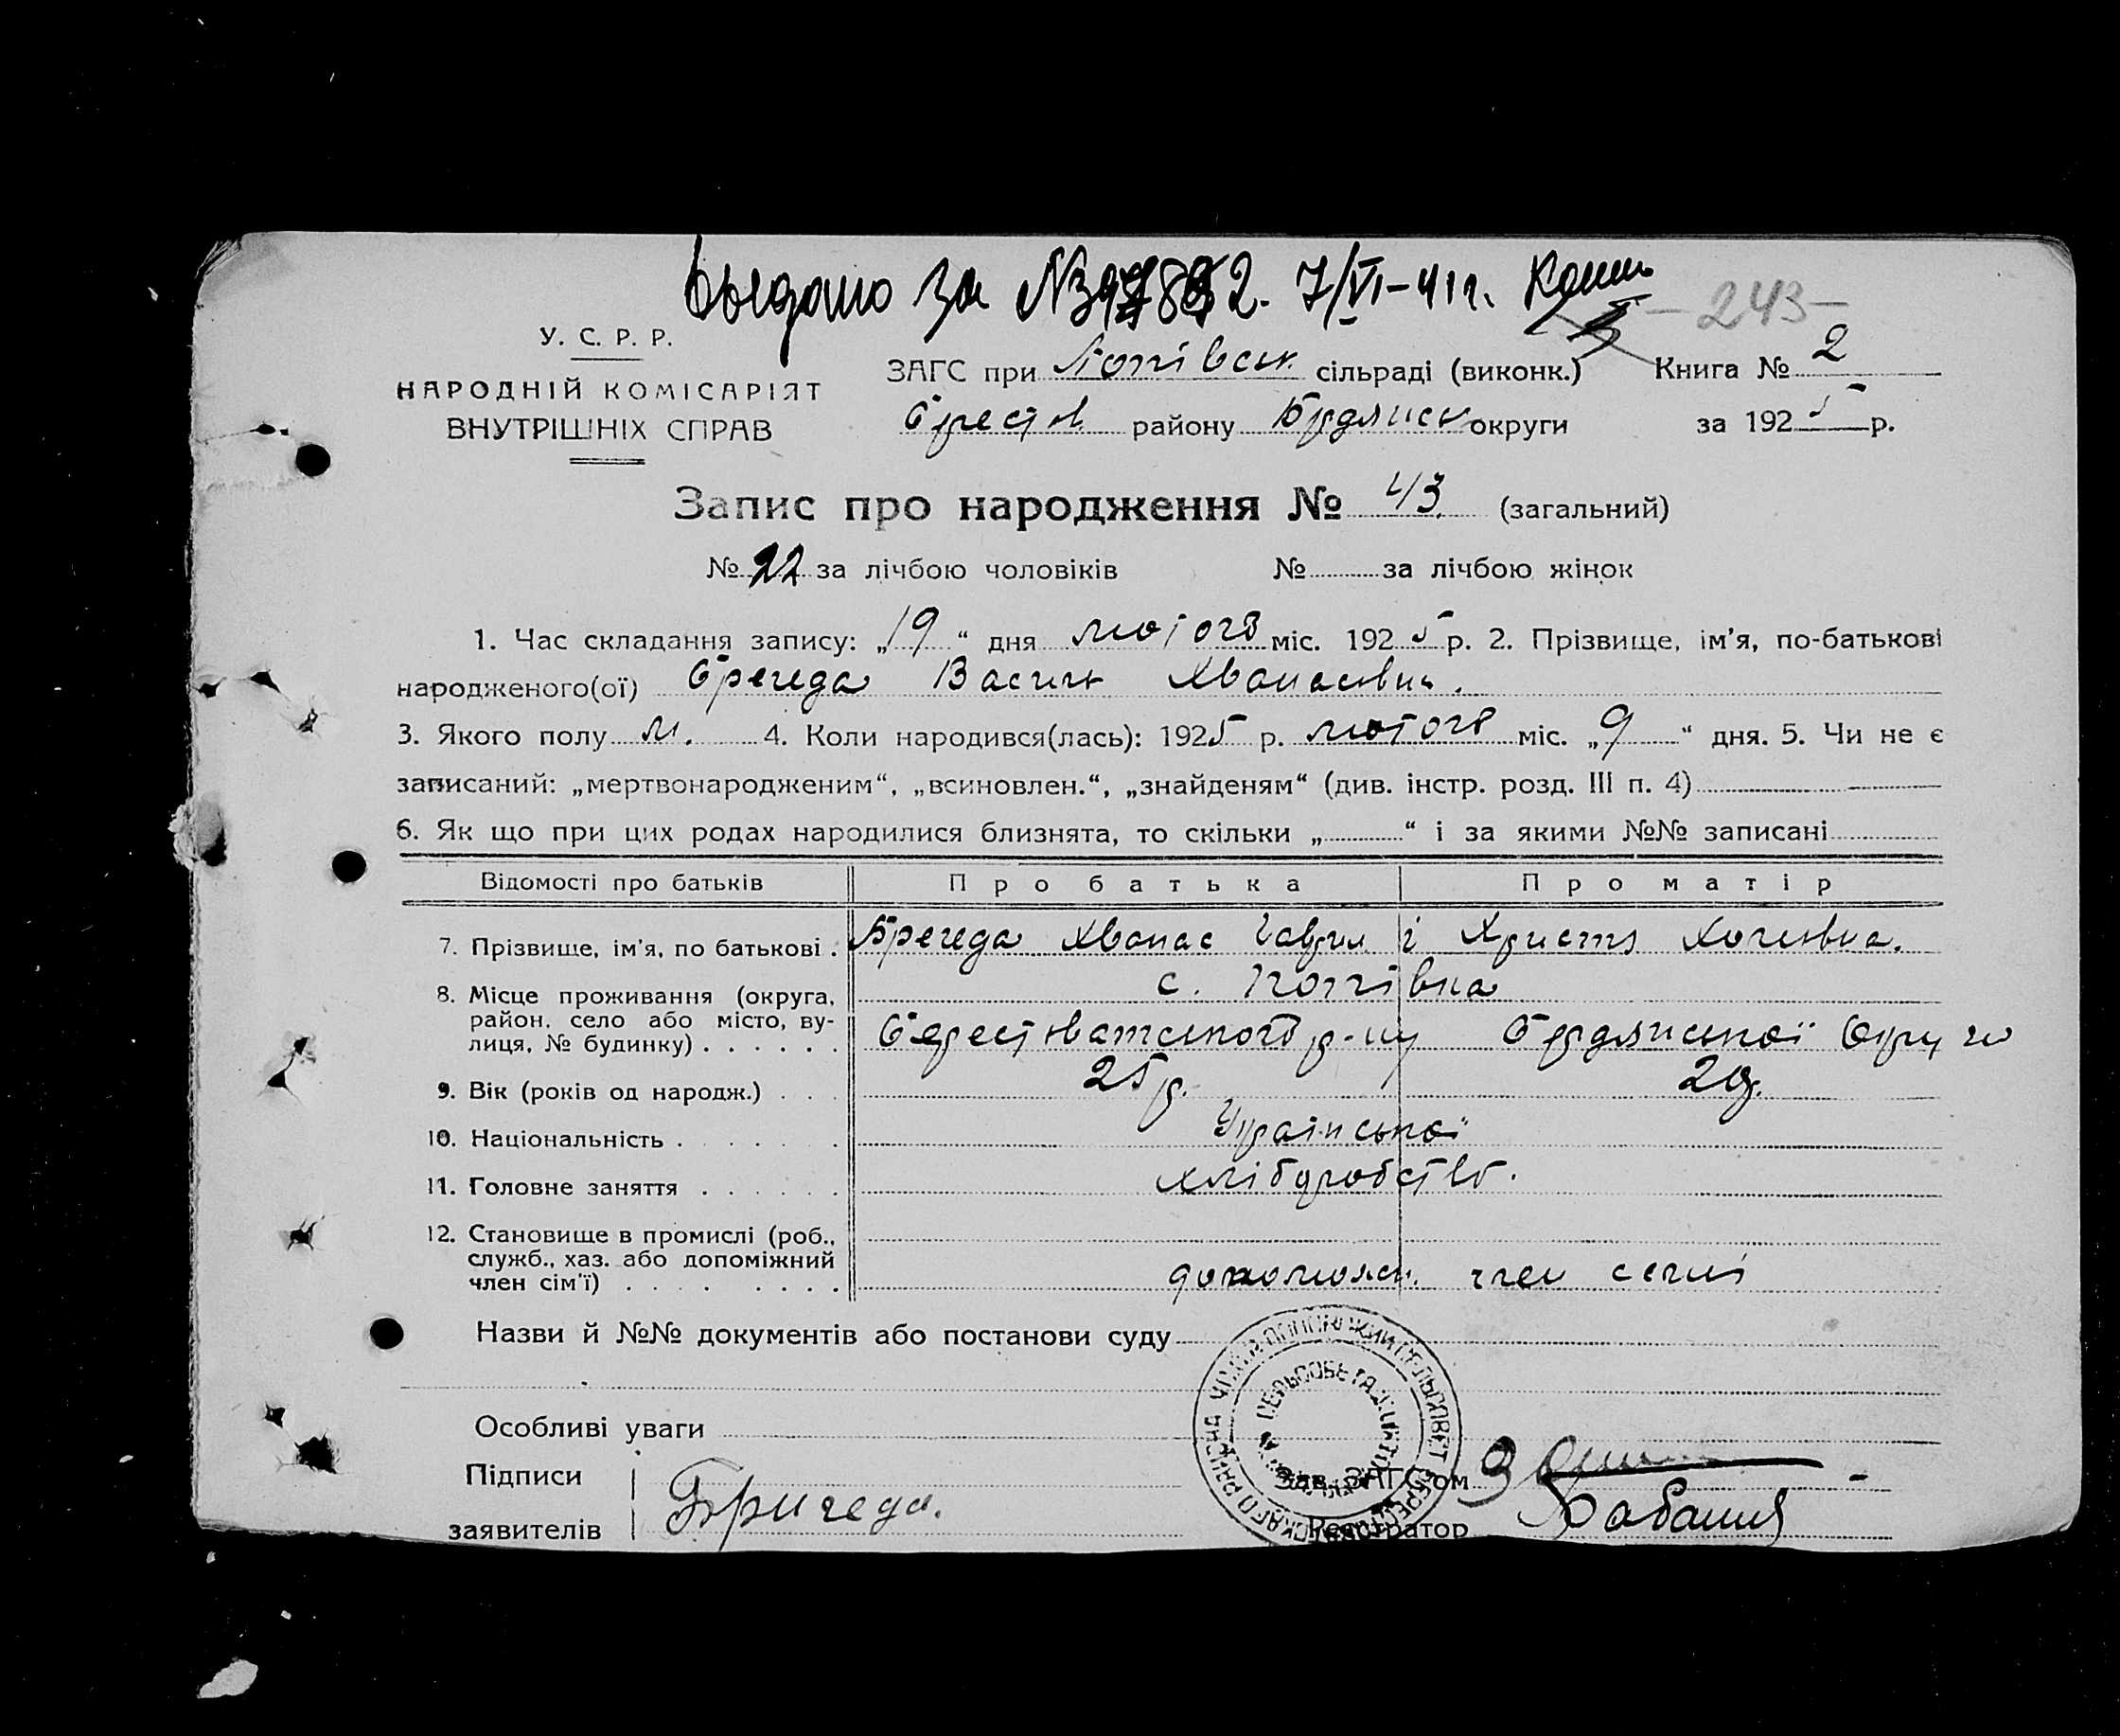 выдано за № 7/VI-41г.
-243-
У. С. Р. Р.
НАРОДНІЙ КОМІСАРІЯТ
ВНУТРІШНІХ СПРАВ
ЗАГС при Попівськ. сільраді (виконк.) Книга № 2
Брестов. району Бердянськ округи за 1925 р.
Запис про народження № 43. (загальний)
№ 22 за лічбою чоловіків № за лічбою жінок
1. Час складання запису: „19“ дня лютого міс. 1925 р. 2. Прізвище, ім'я, по-батькові
народженого(ої) Брегеда Василь Хванасович.
3. Якого полу м. 4. Коли народився(лась): 1925 р. лютого міс. „9“ дня. 5. Чи не є
записаний: „мертвонародженим“, „всиновлен.“, „знайденям“ (див. інстр. розд. III п. 4)
6. Як що при цих родах народилися близнята, то скільки „ “ і за якими №№ записані
Відомості про батьків Про батька Про матір
7. Прізвище, ім'я, по батькові . Брегеда Хванас Гаврил. і Христя
8. Місце проживання (округа, с. Попівка
район, село або місто, ву-
лиця, № будинку) . . . . . . р-ну Бердянської Округи
9. Вік (років од народж.) . . . 25 р.
10. Національність . . . . . . . Української
11. Головне заняття . . . . . . хліборобство.
12. Становище в промислі (роб.,
служб., хаз. або допоміжний
член сім'ї) . . . . . . . . допоможн. член семї
Назви й №№ документів або постанови суду
Особливі уваги
Підписи Зав. ЗАГС'ом
заявителів Бригеда. Реєстратор